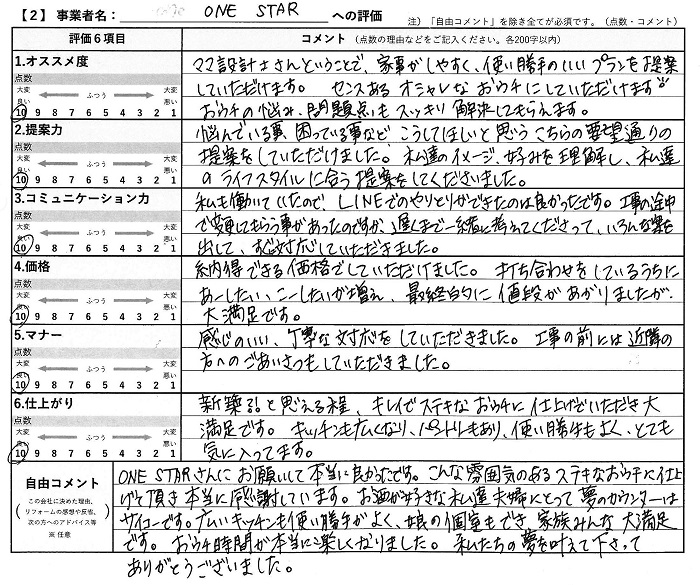 【２】事業者名： ONE STAR への評価 注）「自由コメント」を除き全てが必須です。（点数・コメント）
評価６項目 コメント（点数の理由などをご記入ください。各200字以内）
1.オススメ度
点数
大変良い ふつう 大変悪い
10 9 8 7 6 5 4 3 2 1
ママ設計士さんということで、家事がしやすく、使い勝手のいいプランを提案
していただけます。 センスある オシャレな おウチにしていただけます
おウチの悩み、問題点も スッキリ 解決してもらえます。
2.提案力
点数
大変良い ふつう 大変悪い
10 9 8 7 6 5 4 3 2 1
悩んでいる事、困っている事など、こうしてほしいと思う こちらの要望通りの
提案をしていただけました。私達のイメージ、好みを理解し、私達
のライフスタイルに合う提案をしてくださいました。
3.コミュニケーション力
点数
大変良い ふつう 大変悪い
10 9 8 7 6 5 4 3 2 1
私も働いていたので、LINEでのやりとりができたのは良かったです。工事の途中
で変更してもらう事があったのですが、遅くまで一緒に考えてくださって、いろんな案を
出して、すぐ対応していただきました。
4.価格
点数
大変良い ふつう 大変悪い
10 9 8 7 6 5 4 3 2 1
納得できる価格でしていただけました。 打ち合わせをしているうちに
あーしたい、こーしたいが増え、最終的に値段があがりましたが、
大満足です。
5.マナー
点数
大変良い ふつう 大変悪い
10 9 8 7 6 5 4 3 2 1
感じのいい、丁寧な対応をしていただきました。工事の前には近隣の
方へのごあいさつもしていただきました。
6.仕上がり
点数
大変良い ふつう 大変悪い
10 9 8 7 6 5 4 3 2 1
新築？と思える程、キレイでステキなおウチに仕上げていただき大
満足です。キッチンも広くなり、パントリーもあり、使い勝手もよく、とても
気に入ってます。
自由コメント
（この会社に決めた理由、
リフォームの感想や反省、
次の方へのアドバイス等）
※ 任意
ONE STARさんにお願いして本当に良かったです。こんな雰囲気のあるステキなおウチに仕上
げて頂き本当に感謝しています。お酒が好きな私達夫婦にとって夢のカウンターは
サイコーです。広いキッチンも使い勝手がよく、娘の個室もでき、家族みんな大満足
です。おウチ時間が本当に楽しくなりました。私たちの夢を叶えて下さって
ありがとうございました。